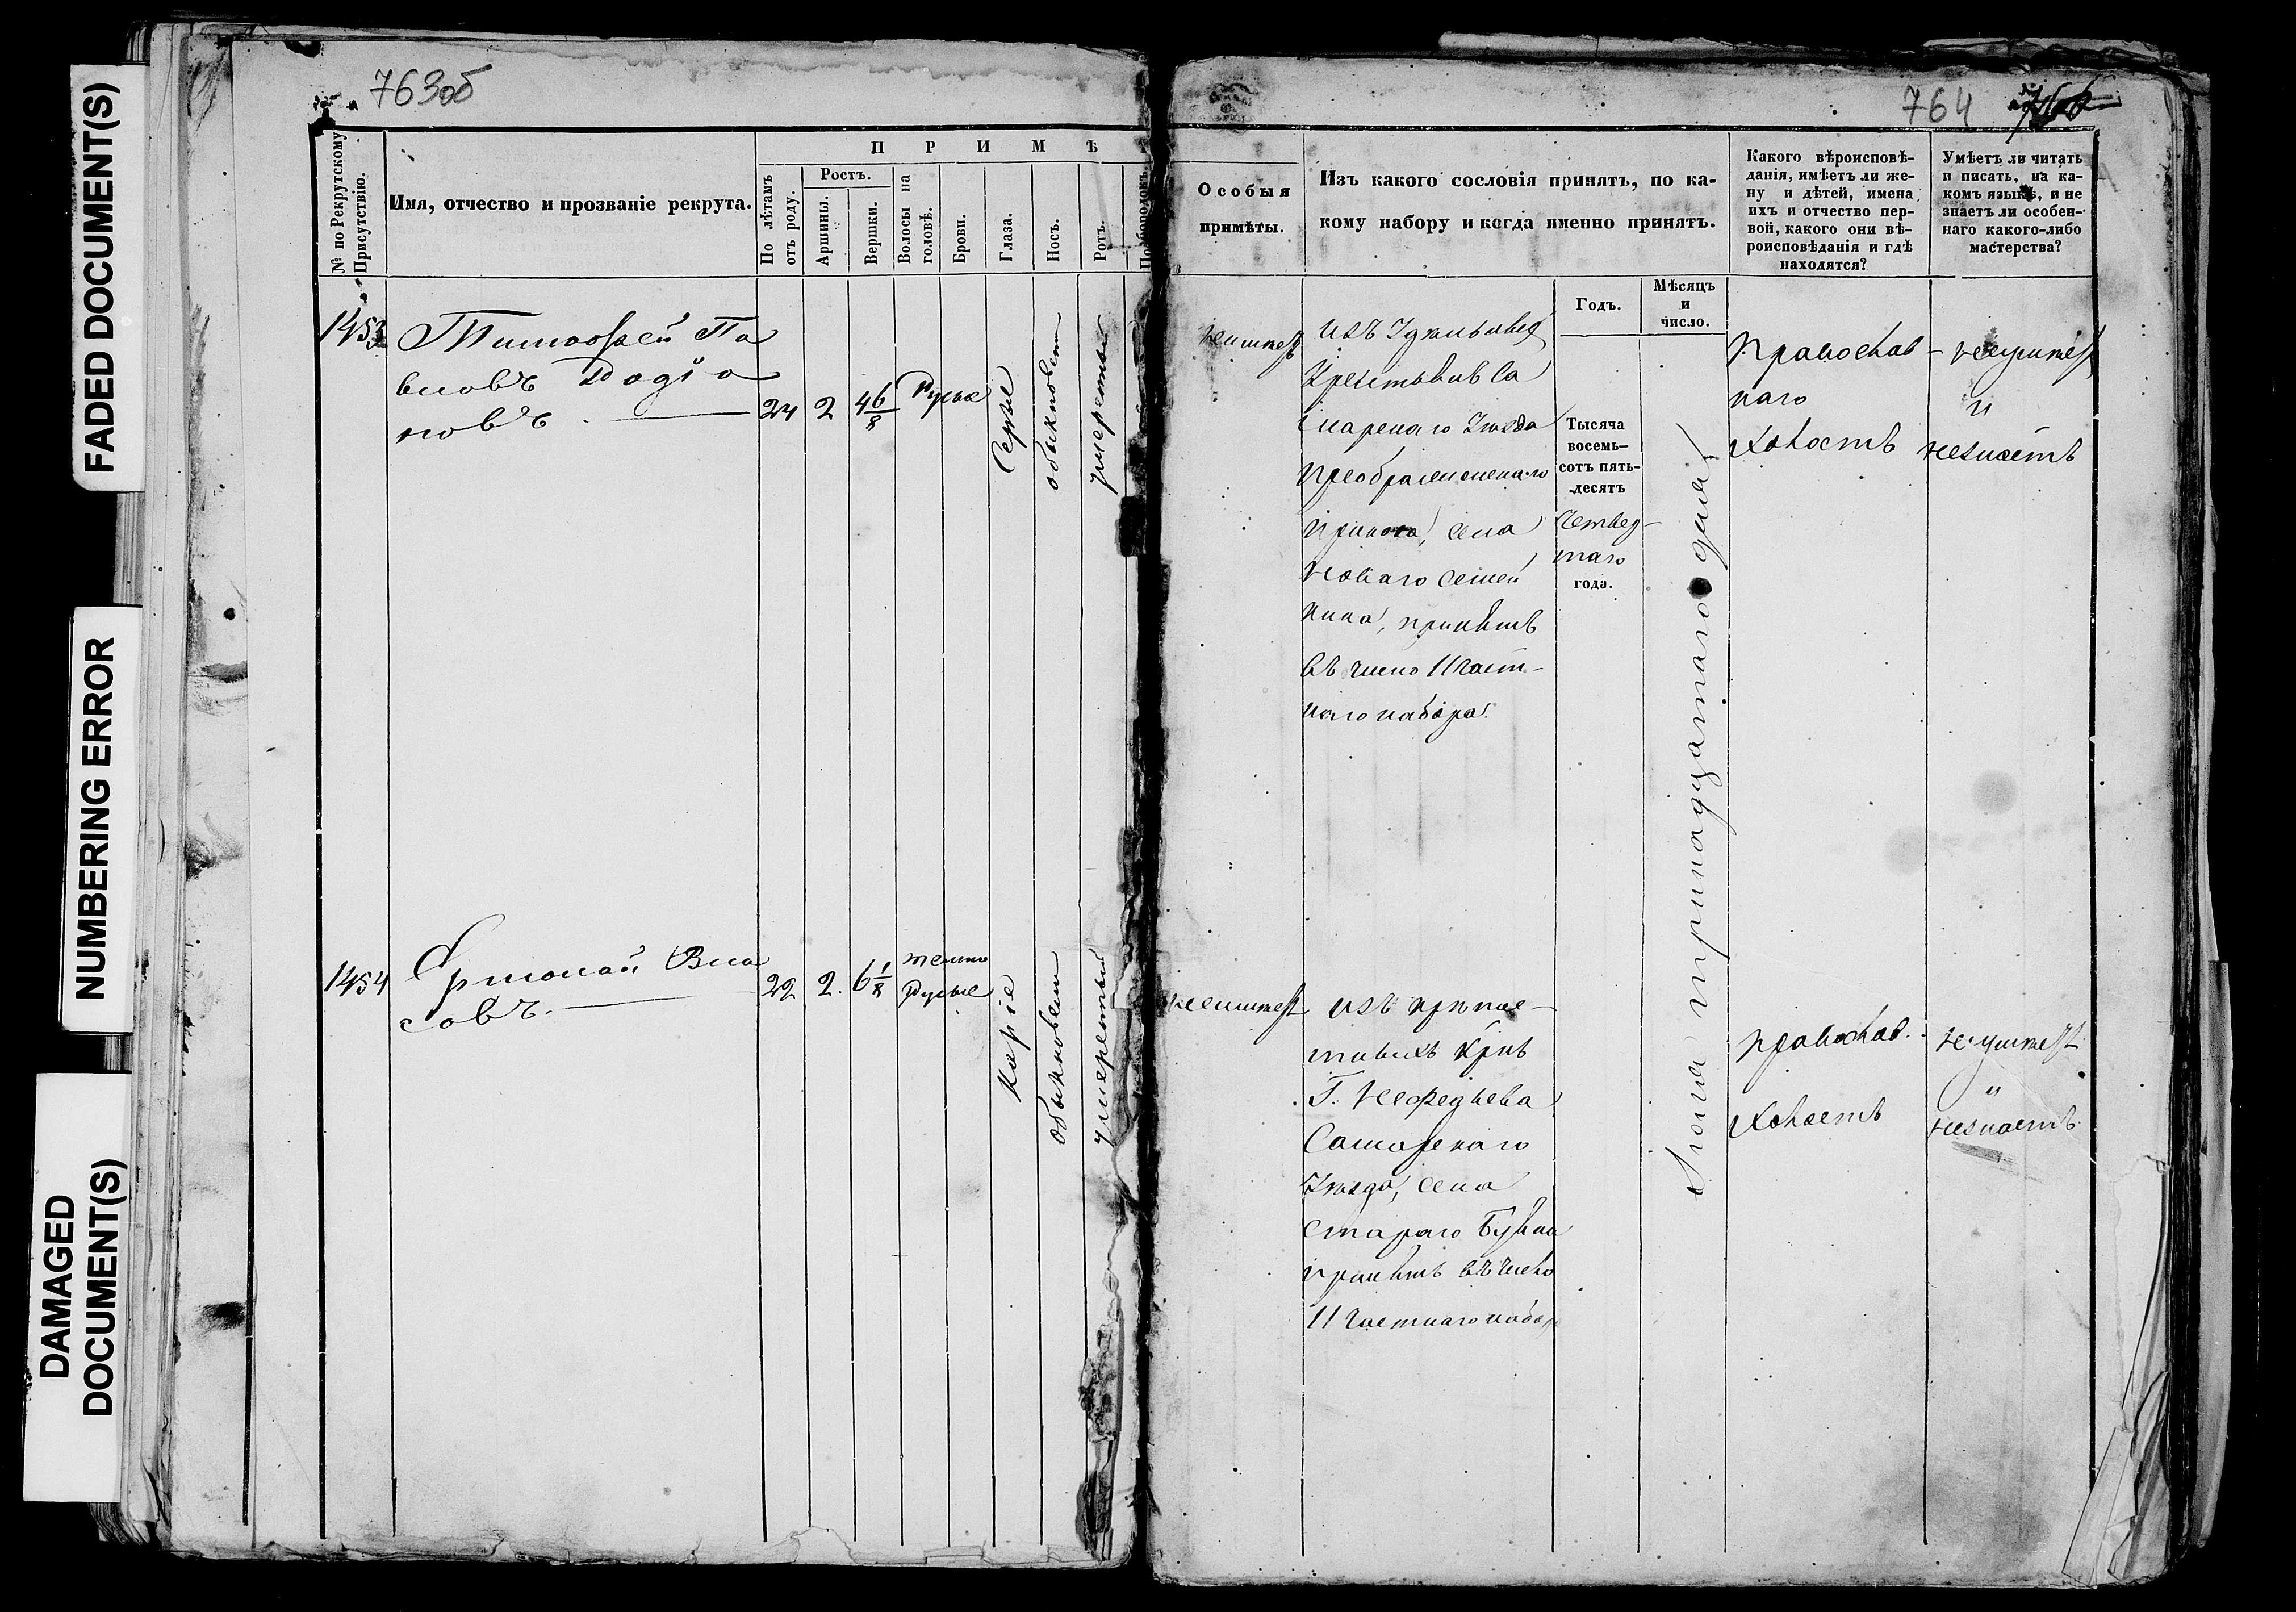 FADED DOCUMENT(S)
NUMBERING ERROR
DAMAGED
DOCUMENT(S)
763об
№ по Рекрутскому
Присутствію.
Имя, отчество и прозваніе рекрута.
П Р И М Ѣ
По лѣтамъ
отъ роду.
Ростъ.
Аршины.
Вершки.
Волосы на
головѣ.
Брови.
Глаза.
Носъ.
Ротъ.
Подбородокъ.
1453
Тимофей Па
вловъ Радіо
новъ.
24
2
4 6/8
Русые
Серые
обыкновен
умеретный
1454
Ермолай Вла
совъ.
22
2.
6 1/8
темно
Русые
Каріе
обыкновен
умеретный
764
Особыя
примѣты.
Изъ какого сословія принятъ, по ка-
кому набору и когда именно принятъ.
Какого вѣроисповѣ-
данія, имѣетъ ли же-
ну и дѣтей, имена
ихъ и отчество пер-
вой, какого они вѣ-
роисповѣданія и гдѣ
находятся?
Умѣетъ ли читать
и писать, на ка-
комъ языкѣ, и не
знаетъ ли особен-
наго какого-либо
мастерства?
Годъ.
Мѣсяцъ
и
число.
неимеет
изъ Удельныхъ
Крестьянъ Са
марскаго Уезда
Преображенскаго
Приказа, села
Новаго Семей
кина, принятъ
въ число 11 част-
наго набора.
Тысяча
восемь-
сотъ пять-
десятъ
Четвер-
таго
года.
Іюня тринадцатаго дня
Православ-
наго
Холостъ
неумеет
и
незнаетъ
неимеет
изъ крѣпос-
тныхъ Крнъ
Г. Нефедьева
Самарскаго
Уезда, села
Стараго Буяна
принятъ въ число
11 Частнаго набор
Православ.
Холостъ
неумеет
"
незнаетъ